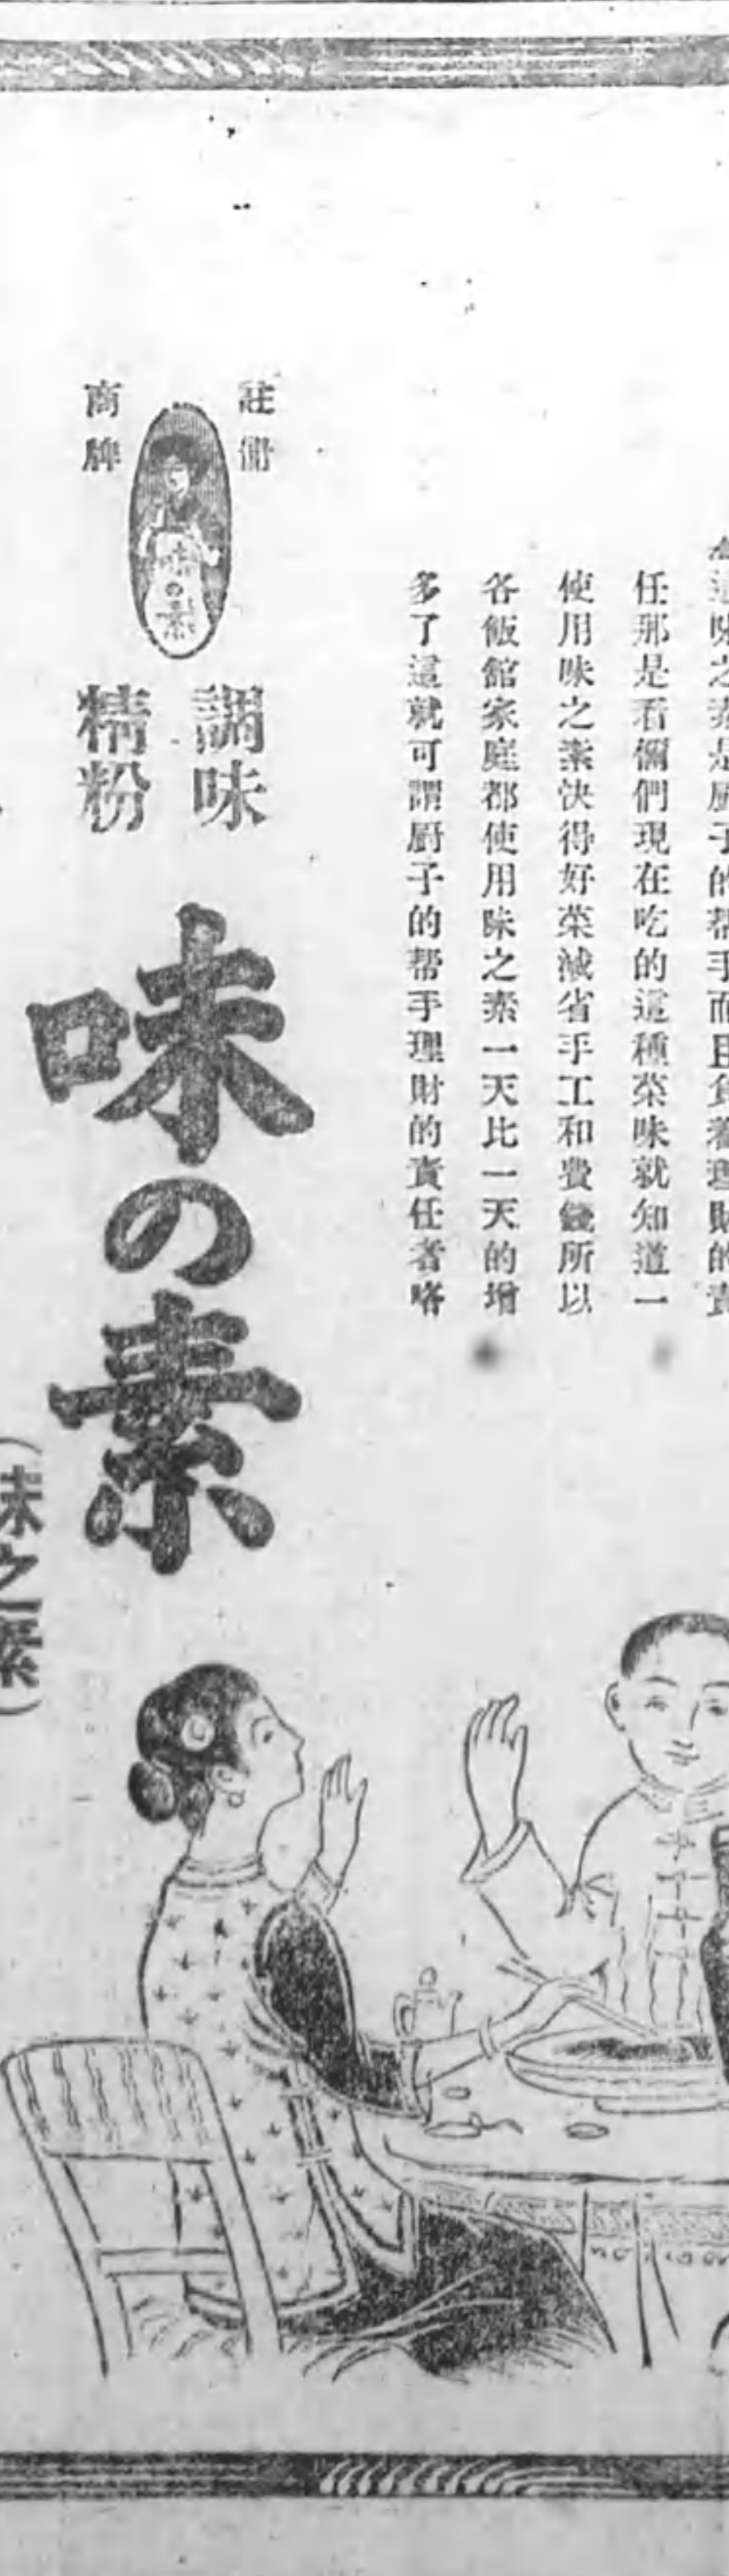 這味之素是厨子的帮手而且負着理財的責
任那是看儞們現在吃的這種菜味就知道一
使用味之素快得好菜減省手工和費錢所以
各飯館家庭都使用味之素一天比一天的增
多了這就可謂厨子的帮手理財的責任者咯
註冊
商牌
味の素
調味
精粉
味の素
(味之素)